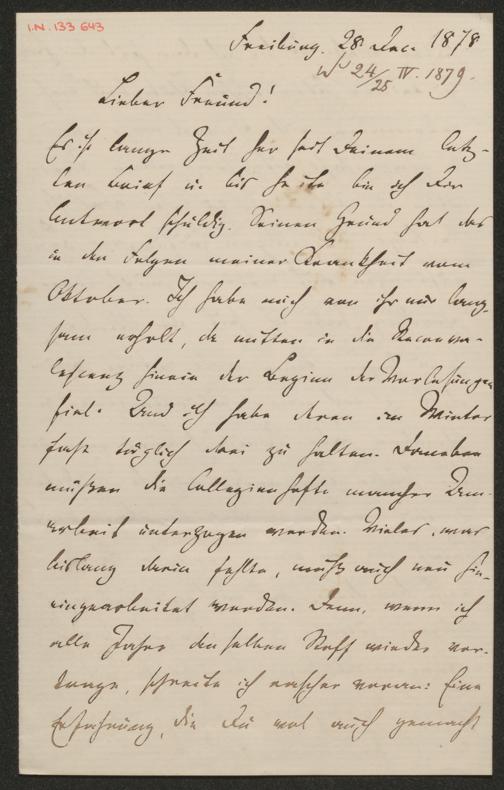 I.N. 133 643
Freiburg. 28. Dec. 1878
24/25 IV. 1879.
Lieber Freund!
Es ist lange Zeit her seit Deinem letz-
ten Brief u. bis heute bin ich Dir
Antwort schuldig. Seinen Grund hat das
in den Folgen meiner Krankheit vom
Oktober. Ich habe mich von ihr nur lang-
sam erholt, da mitten in die Reconva-
lescenz hinein der Beginn der Vorlesungen
fiel. Und ich habe deren im Winter
fast täglich drei zu halten. Daneben
müssen die Collegienhefte mancher Um-
arbeit unterzogen werden. Vieles, was
bislang darin fehlte, muß auch neu hin-
eingearbeitet werden. Denn, wenn ich
alle Jahre denselben Stoff wieder vor-
trage, schreite ich rascher voran: Eine
Erfahrung, die Du wol auch gemacht